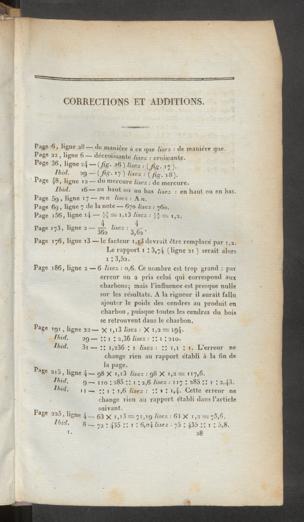 CORRECTIONS ET ADDITIONS.
Page 6, ligne 28 — de manière à ce que lisez : de manière que.
Page 22, ligne 6 — décroissante lisez : croissante.
Page 36, ligne 24 — (fig. 26) lisez : (fig. 17).
Ibid. 29 — (fig. 17) lisez : (fig. 28).
Page 48, ligne 12 — du mercure lisez : de mercure.
Ibid. 16 — en haut ou au bas lisez : en haut ou en bas.
Page 59, ligne 17 — mn lisez : An.
Page 69, ligne 7 de la note — 670 lisez : 760.
Page 156, ligne 14 — = 1,13 lisez : = 1,2.
Page 173, ligne 2 — 4/360 lisez : 4/3,60.
Page 176, ligne 13 — le facteur 1,13 devrait être remplacé par 1,2.
Le rapport 1 : 3,74 (ligne 21) serait alors
1 : 3,52.
Page 186, ligne 2 — 6 lisez : 0,6. Ce nombre est trop grand : par
erreur on a pris celui qui correspond aux
charbons; mais l'influence est presque nulle
sur les résultats. A la rigueur il aurait fallu
ajouter le poids des cendres au produit en
charbon, puisque toutes les cendres du bois
se retrouvent dans le charbon.
Page 191, ligne 22 — × 1,13 lisez : × 1,2 = 194.
Ibid. 29 — :: 1 : 2,36 lisez : :: 1 : 210.
Ibid. 31 — :: 1,236 : 1 lisez : :: 1,1 : 1. L'erreur ne
change rien au rapport établi à la fin de
la page.
Page 215, ligne 4 — 98 × 1,13 lisez : 98 × 1,2 = 117,6.
Ibid. 9 — 110 : 285 :: 1 : 2,6 lisez : 117 : 285 :: 1 : 2,43.
Ibid. 11 — :: 1 : 1,6 lisez : :: 1 : 1,4. Cette erreur ne
change rien au rapport établi dans l'article
suivant.
Page 225, ligne 4 — 63 × 1,13 = 71,19 lisez : 63 × 1,2 = 75,6.
Ibid. 8 — 72 : 435 :: 1 : 6,04 lisez : 75 : 435 :: 1 : 5,8.
1. 28